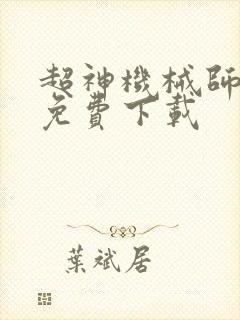 超神機械師
免費下載
葉斌居